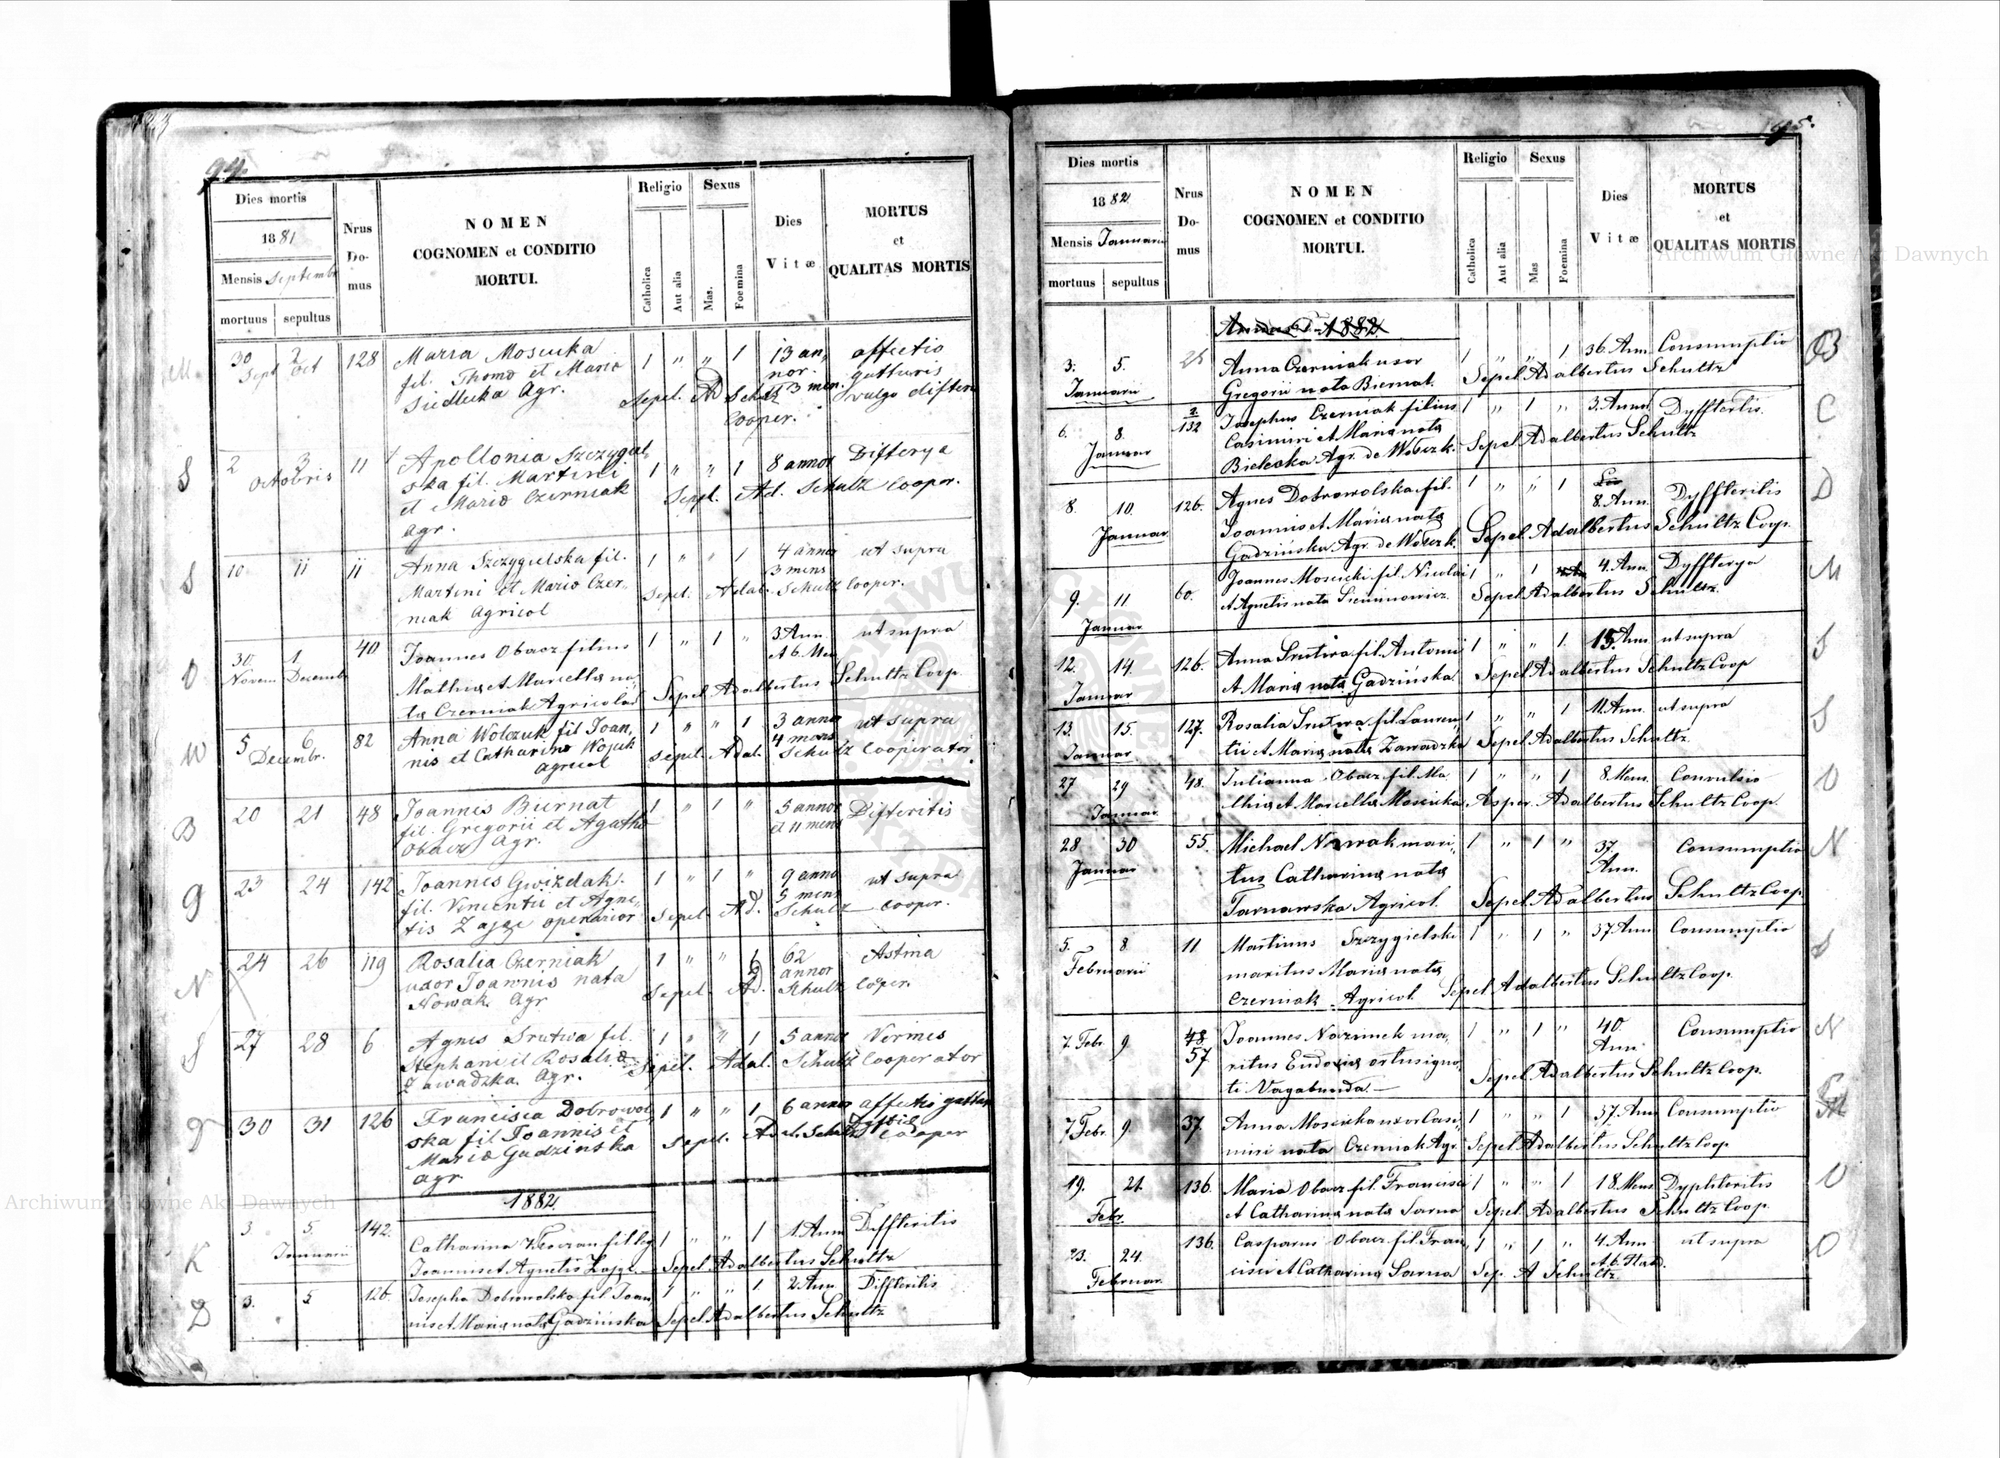 94.
Dies mortis
1881
Mensis Septembr
mortuus sepultus
Nrus Domus
NOMEN
COGNOMEN et CONDITIO
MORTUI.
Religio
Catholica
Aut alia
Sexus
Mas.
Foemina
Dies
Vitæ
MORTUS
et
QUALITAS MORTIS
M. 30 Sept 2 Oct 128 Maria Mosicka 1 " " 1 13 an, affectio
fil. Thoma et Maria nor. gutturis
Siedlecka Agr. Sepel. Ad Schulz 3 men. vulgo difter
Cooper.
S 2 3 11 Apollonia Szczygiel 1 " " 1 8 annor Difterya
Octobris ska fil. Martini
et Maria Czerniak Sepel. Ad. Schulz Cooper.
agr.
S 10 11 11 Anna Szczygielska fil. 1 " " 1 4 annor ut supra
Martini et Maria Czer- 3 mens
niak agricol Sepel. Adal. Schulz Cooper.
O 30 1 40 Joannes Obacz filius 1 " 1 " 3 Ann. ut supra
Novem Decemb et 6. Men
Mathiæ et Mariella na-
ta Czerniak Agricola Sepel Adalbertus Schultz Coop.
W 5 6 82 Anna Wolczuk fil Joan, 1 " " 1 3 annor ut supra
Decembr. nis et Catharina Wojuk 4 mens
agricol Sepel. Adal. Schulz Cooperator
B 20 21 48 Joannes Biernat 1 " 1 " 5 annor Difteritis
fil. Gregorii et Agatha et 11 mens
Obacz Agr.
G 23 24 142 Joannes Gwizdak 1 " 1 " 9 anno ut supra
fil. Vincentii et Agne- 5 mens
tis Zajac operarior Sepel Ad. Schulz cooper.
N 24 26 119 Rosalia Czerniak 1 " " 1 62 Astma
uxor Joannis nata annor
Nowak Agr Sepel. Ad. Schulz Cooper.
S 27 28 6 Agnes Srutwa fil. 1 " " 1 5 annor Vermes
Stephani et Rosalia
Zawadzka. Agr. Sepel. Adal. Schulz Cooperator
D 30 31 126 Francisca Dobrowol 1 " " 1 6 annor affectio guttur
ska fil Joannis et
Maria Gadzinska Sepel. Adal. Schulz Cooper
agr.
1882.
K 3. 5. 142. Catharina fil leg 1 " " 1 1. Ann Diffteritis
Januarii Joannis et Agnetis Zajac Sepel Adalbertus Schultz
D 3. 5 126. Josepha Dobrowolska fil Joan, 1 " " 1. 2. Ann. Diffteritis
nis et Maria nata Gadzińska Sepel Adalbertus Schultz
95.
Dies mortis
1882
Mensis Januarii
mortuus sepultus
Nrus Domus
NOMEN
COGNOMEN et CONDITIO
MORTUI.
Religio
Catholica
Aut alia
Sexus
Mas
Foemina
Dies
Vitæ
MORTUS
et
QUALITAS MORTIS
1882.
3. 5. 25 Anna Czerniak uxor 1 " " 1 36. Ann Consumptio B
Januarii Gregorii nata Biernat. Sepel Adalbertus Schultz
6. 8. 132 Josephus Czerniak filius 1 " 1 " 3. Annor Dyffteritis. C
Januar Casimiri et Maria nata
Bielecka Agr. de Wołczk. Sepel Adalbertus Schultz
8. 10. 126. Agnes Dobrowolska fil. 1 " " 1 8. Ann. Dyffteritis D
Januar Joannis et Maria nata
Gadzińska Agr. de Wołczk. Sepel Adalbertus Schultz Coop.
9. 11 60. Joannes Mosicki fil. Nicolai 1 " 1 4. Ann. Dyffterya M
Januar et Agnetis nata Sieminowicz. Sepel Adalbertus Schultz.
12. 14. 126. Anna Srutwa fil. Antonii 1 " " 1. 15. Ann ut supra S
Januar et Maria nata Gadzińska Sepel Adalbertus Schultz Coop
13. 15. 127. Rosalia Srutwa fil. Lauren, 1 " " 1 11. Ann. ut supra S
Januar tii et Maria nata Zawadzka Sepel Adalbertus Schultz.
27 29 48. Julianna Obacz fil. Ma 1 " " 1 8. Mens. Convulsio O
Januar. thia et Marcella Mosicka Asper. Adalbertus Schultz Coop.
28 30 55. Michael Nowak mari, 1 " 1 " 37. Ann. Consumptio N
Januar tus Catharina nata
Tarnawska Agricol. Sepel. Adalbertus Schultz Coop.
5. 8. 11 Martinus Szczygielski 1 " 1 " 37 Ann Consumptio S
Februarii maritus Maria nata
Czerniak Agricol. Sepel Adalbertus Schultz Coop.
7. Febr. 9 48 57 Joannes Nozimek ma, 1 " 1 " 40. Ann. Consumptio N
ritus Eudoxia ortus igno-
ti Vagabunda — Sepel Adalbertus Schultz Coop.
7 Febr. 9 37. Anna Mosicka uxor Casi, 1 " " 1 37. Ann Consumptio M
miri nata Czerniak Agr. Sepel Adalbertus Schultz Coop
19. 21. 136. Maria Obacz fil. Francisci 1 " " 1 18. Mens. Dyphteritis O
Febr. et Catharina nata Sarna Sepel Adalbertus Schultz Coop.
23. 24. 136. Casparus Obacz fil. Fran, 1 " 1 " 4. Ann ut supra O
Februar. cisci et Catharina Sarna Sep. A Schultz.
Archiwum Główne Akt Dawnych
Archiwum Główne Akt Dawnych